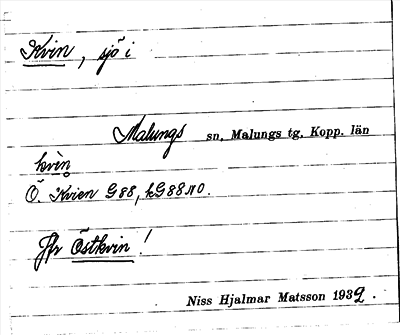 Kvin, sjö i
Malungs sn, Malungs tg, Kopp. län
kvèn
Ö. Kvien G88, kG88NO.
Jfr Östkvin!
Niss Hjalmar Matsson 1932.